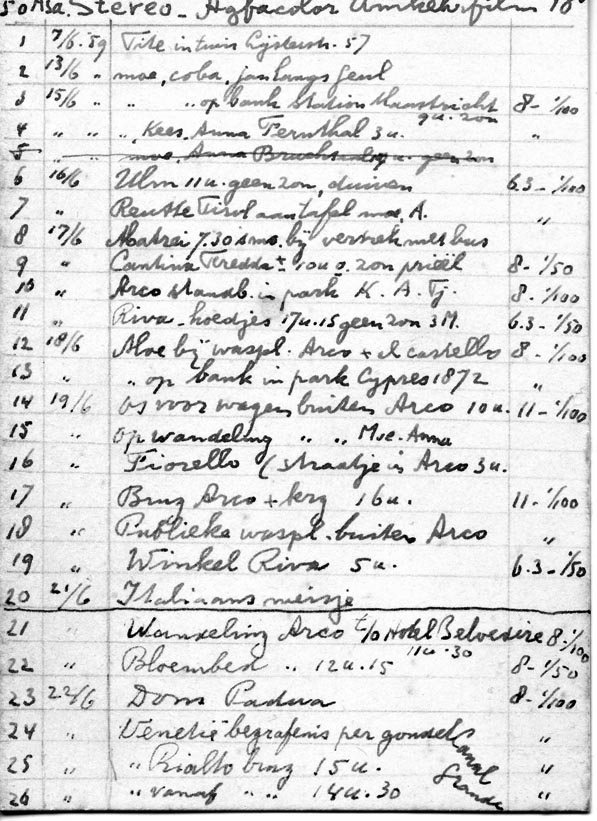 50 Asa. Stereo - Agfacolor Umkehrfilm 18
1 7/6.59 Tite in tuin Lijsterstr. 57
2 13/6 " moe, coba, jan langs Geul
3 15/6 " " " op bank Station Maastricht 8 - 1/100
4 " " " Kees, Anna Fernthal 3u. 9u. zon "
5 " " moe, Anna Bruchsal u. geen zon
6 16/6 Ulm 11u. geen zon, duiven 6.3 - 1/100
7 " Reutte Tirol aan tafel moe, A. "
8 17/6 Matrei 7.30 smo. bij vertrek met bus
9 " Cantina Teredda ± 10u o. zon prieël 8 - 1/50
10 " Arco standb. in park K. A. Tj. 8 - 1/100
11 " Riva - hoedjes 17u.15 geen zon 3M. 6.3 - 1/50
12 18/6 Moe bij waspl. Arco + il castello 8 - 1/100
13 " " op bank in park Cypres 1872 "
14 19/6 os voor wagen buiten Arco 10u. 11 - 1/100
15 " op wandeling " " Moe-Anna
16 " Fiorello (straatje in Arco 3u.
17 " Brug Arco + berg 16u. 11 - 1/100
18 " Publieke waspl. buiten Arco "
19 " Winkel Riva 5u. 6.3 - 1/50
20 21/6 Italiaans meisje
21 " Wandeling Arco t/o Hotel Belvedere 8 - 1/100
11u.30
22 " Bloembed " 12u.15 8 - 1/50
23 22/6 Dom Padua 8 - 1/100
24 " Venetië begrafenis per gondel "
25 " " Rialto brug 15u. Canal Grande "
26 " " vanaf " " 14u.30 "